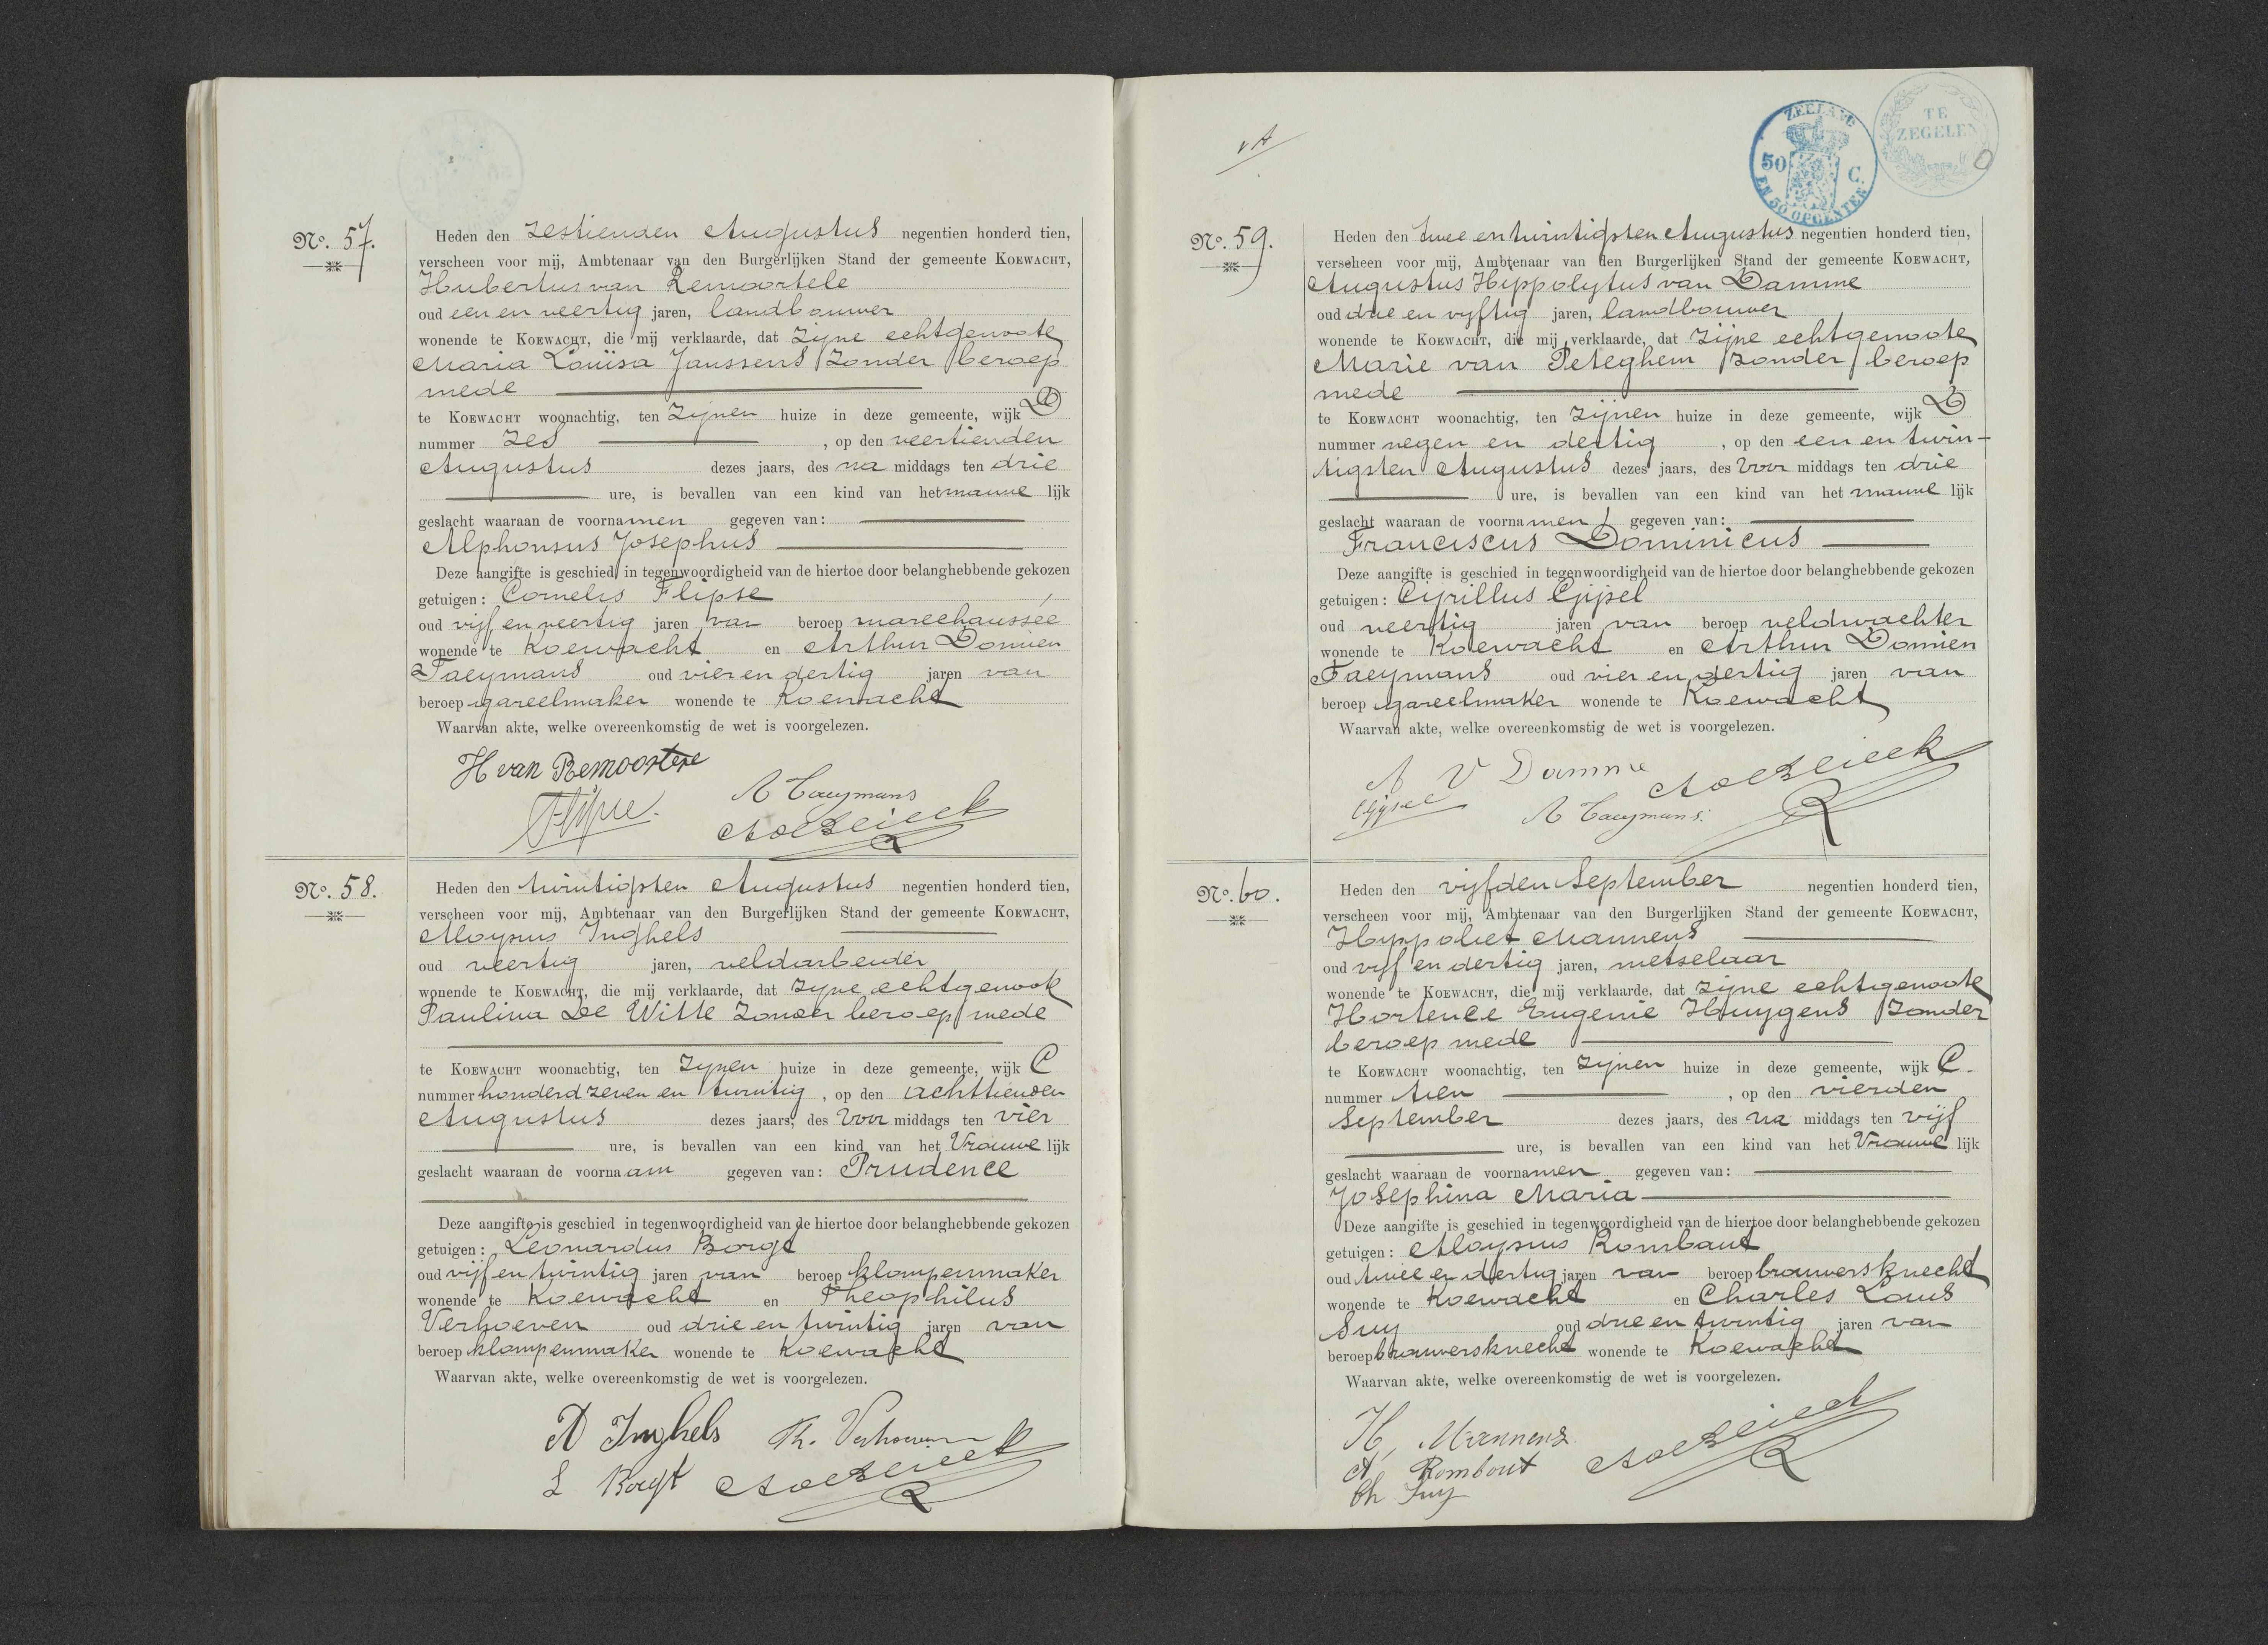 No. 57.
Heden den zestienden Augustus negentien honderd tien,
verscheen voor mij, Ambtenaar van den Burgerlijken Stand der gemeente KOEWACHT,
Hubertus van Remoortele
oud een en veertig jaren, landbouwer
wonende te KOEWACHT, die mij verklaarde, dat zijne echtgenoote
Maria Louisa Janssens zonder beroep
mede
te KOEWACHT woonachtig, ten zijnen huize in deze gemeente, wijk D
nummer zes, op den veertienden
Augustus dezes jaars, des na middags ten drie
ure, is bevallen van een kind van het manne lijk
geslacht waaraan de voornamen gegeven van:
Alphonsus Josephus
Deze aangifte is geschied in tegenwoordigheid van de hiertoe door belanghebbende gekozen
getuigen: Cornelis Flipse
oud vijf en veertig jaren van beroep marechaussée
wonende te Koewacht en Arthur Domien
Taeymans oud vier en dertig jaren van
beroep gareelmaker wonende te Koewacht
Waarvan akte, welke overeenkomstig de wet is voorgelezen.
H van Remoortere
Flipse.
A Taeymans
No. 58.
Heden den twintigsten Augustus negentien honderd tien,
verscheen voor mij, Ambtenaar van den Burgerlijken Stand der gemeente KOEWACHT,
Aloysius Inghels
oud veertig jaren, veldarbeider
wonende te KOEWACHT, die mij verklaarde, dat zijne echtgenoote
Paulina De Witte zonder beroep mede
te KOEWACHT woonachtig, ten zijnen huize in deze gemeente, wijk C
nummer honderd zeven en twintig, op den achttienden
Augustus dezes jaars, des voor middags ten vier
ure, is bevallen van een kind van het Vrouwe lijk
geslacht waaraan de voornaam gegeven van: Prudence
Deze aangifte is geschied in tegenwoordigheid van de hiertoe door belanghebbende gekozen
getuigen: Leonardus Borgt
oud vijf en twintig jaren van beroep klompenmaker
wonende te Koewacht en Theophilus
Verhoeven oud drie en twintig jaren van
beroep klompenmaker wonende te Koewacht
Waarvan akte, welke overeenkomstig de wet is voorgelezen.
A Inghels Th. Verhoeven
L Borgt
ZEELAND
50 C.
EN 50 OPCENTEN
TE
ZEGELEN
No. 59.
Heden den twee en twintigsten Augustus negentien honderd tien,
verscheen voor mij, Ambtenaar van den Burgerlijken Stand der gemeente KOEWACHT,
Augustus Hippolytus van Damme
oud drie en vijftig jaren, landbouwer
wonende te KOEWACHT, die mij verklaarde, dat zijne echtgenoote
Marie van Peteghem zonder beroep
mede
te KOEWACHT woonachtig, ten zijnen huize in deze gemeente, wijk D
nummer negen en dertig, op den een en twin-
tigsten Augustus dezes jaars, des voor middags ten drie
ure, is bevallen van een kind van het manne lijk
geslacht waaraan de voornamen gegeven van:
Franciscus Dominicus
Deze aangifte is geschied in tegenwoordigheid van de hiertoe door belanghebbende gekozen
getuigen: Cyrillus Gijsel
oud veertig jaren van beroep veldwachter
wonende te Koewacht en Arthur Domien
Taeymans oud vier en dertig jaren van
beroep gareelmaker wonende te Koewacht
Waarvan akte, welke overeenkomstig de wet is voorgelezen.
A V Damme
A Taeymans.
No. 60.
Heden den vijfden September negentien honderd tien,
verscheen voor mij, Ambtenaar van den Burgerlijken Stand der gemeente KOEWACHT,
Hyppoliet Mannens
oud vijf en dertig jaren, metselaar
wonende te KOEWACHT, die mij verklaarde, dat zijne echtgenoote
Hortence Eugenie Huygens zonder
beroep mede
te KOEWACHT woonachtig, ten zijnen huize in deze gemeente, wijk C.
nummer tien, op den vierden
September dezes jaars, des na middags ten vijf
ure, is bevallen van een kind van het Vrouwe lijk
geslacht waaraan de voornamen gegeven van:
Josephina Maria
Deze aangifte is geschied in tegenwoordigheid van de hiertoe door belanghebbende gekozen
getuigen: Aloysius Rombaut
oud twee en dertig jaren van beroep brouwersknecht
wonende te Koewacht en Charles Louis
Suy oud drie en twintig jaren van
beroep brouwersknecht wonende te Koewacht
Waarvan akte, welke overeenkomstig de wet is voorgelezen.
H, Mannens
A Rombout
Ch Suy